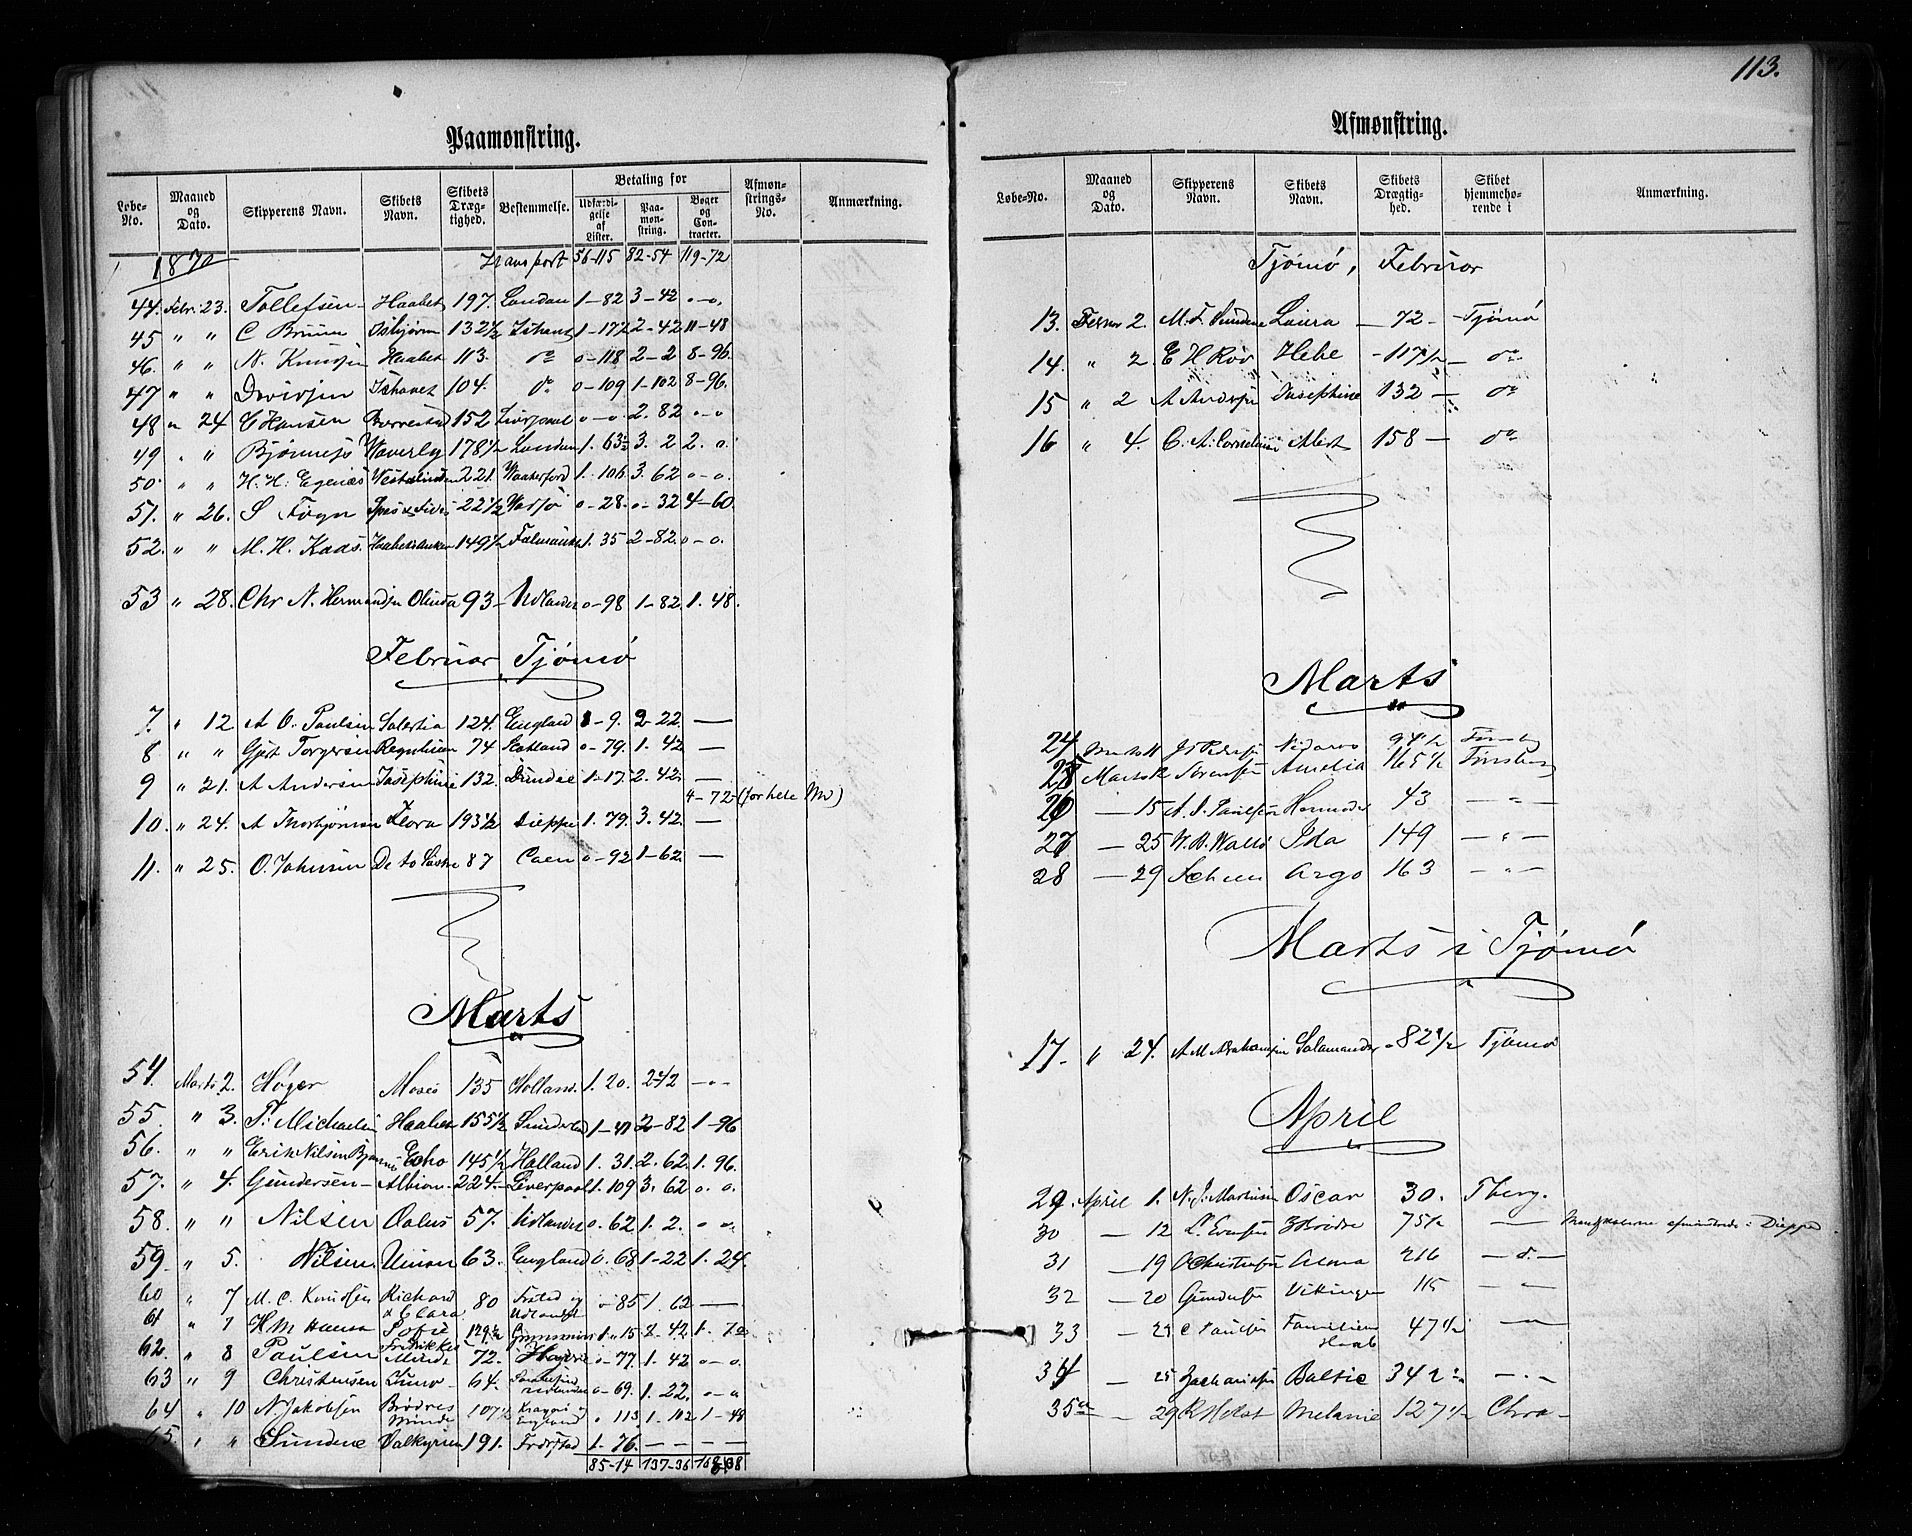 113.
Paamønstring.
Løbe-No. Maaned og Dato. Skipperens Navn. Skibets Navn. Skibets Drægtighed. Bestemmelse. Betaling for Udfærdigelse af Lister. Paamønstring. Bøger og Contracter. Afmønstrings-No. Anmærkning.
1870 Transport 56-115 82-54 119-72
44. Febr. 23. Tollefsen Haabet 197. London 1-82 3-42 0-0.
45 " " C Bruun Isbjørn 132½ Ishavet 1-17 2-42 11-48
46. " " N. Knudsen Haabet 113. do 0-118 2-2 8-96.
47 " " Davidsen Ishavet 104. do 0-109 1-102 8-96.
48 " 24 C Hansen 152 Liverpool 0-0. 2. 82 0-0
49 " " Waverly 178½ London 1. 63 3. 2 2. 0.
50 " " H. H. Egenæs 221. 1. 106 3. 62 0-0.
51. " 26. S Føyn Spes & Fides 22½ Vadsø 0-28. 0-32 4-60.
52. " " M. H. Kaas. 149½ 1. 35 2-82. 0-0.
53 " 28. Chr N. Hermandsen Olinda 93- Udlandet 0-98 1-82 1. 48.
Februar Tjømø
7. " 12 A C. Paulsen 124. England 1-9. 2-22. —
8 " " Torgersen 74 Skotland 0-79. 1. 42 —
9 " 21. A Andersen Josephine 132. Dundee 1-17. 2. 42. —
4-72 (for hele Md)
10. " 24. A Thorbjørnsen Flora 193½ Dieppe 1. 79. 3. 42. —
11. " 25. O. Johnsen De to Søstre 87 Caen 0-92 1-62. —
Marts
54. Marts 2. Høyer Moses 135 Holland. 1. 20. 2-42 -0-
55. " 3. Michaelsen Haabet 155½ 2-82 1-96
56. " " Erik Nilsen Echo 145½ Holland 1. 31. 2. 62. 1. 96.
57. " 4 Gundersen Albion 224. Liverpool 1. 109 3. 62 0. 0.
58. " " Nilsen 57. Udlandet 0. 62 1. 2. 0 0.
59. " 5. Nilsen Union 63. England 0. 68 1-22 1. 24.
60 " 7 M. C. Knudsen Richard & Clara 80 Udlandet 0-85 1. 62 —
61 " 7 H. M Hansen Sofie 129½ 1. 15 2. 42 1.
62. " 8 Paulsen Fredrikkes Minde 72. 0-77. 1. 42 0-0.
63 " 9 Christensen Juno 64. 0-69. 1. 22. 0-0
64 " 10 N Jakobsen Brødres Minde 107½ Kragerø England 0 113 1-102 1-48
" " Sundene Valkyrien 191. Fredrstad 1. 76. — — — —
85-14 137-36
Afmønstring.
Løbe-No. Maaned og Dato. Skipperens Navn. Skibets Navn. Skibets Drægtighed. Skibet hjemmehørende i Anmærkning.
Tjømø, Februar
13. 2. Sundene Laura — 72 - Tjømø
14. " 2 Hebe - 117½ — do
15 " 2 A Andersen Josephine 132 — do
16 " 4. C. A. Cornelius Alert 158 — do
Marts
24 Nidaros 94½ Tønsberg
25 Marts Sørensen Amelia 165½ Tønsberg
26 — 15 Paulsen 43 — " —
27 — 25 Ida 149 — " —
28 — 29 Argo 163 — " —
Marts i Tjømø
17. " 24. A M Abrahamsen Salamander 82½ Tjømø
April
29. April 1. N. J. Martinsen Oscar 30. Tberg.
30 — 12 75½ — Mandskaberne afmønstrede i Dieppe.
31 — 19 O Christensen 216 — d. —
32 — 20 Gundersen Vikingen 115 — " —
33 — Familiens Haab 47½ — " —
34 — 25 Zachariasen Baltic 342 — . —
35 — 29 R Holst Melanie 127½ Chra -